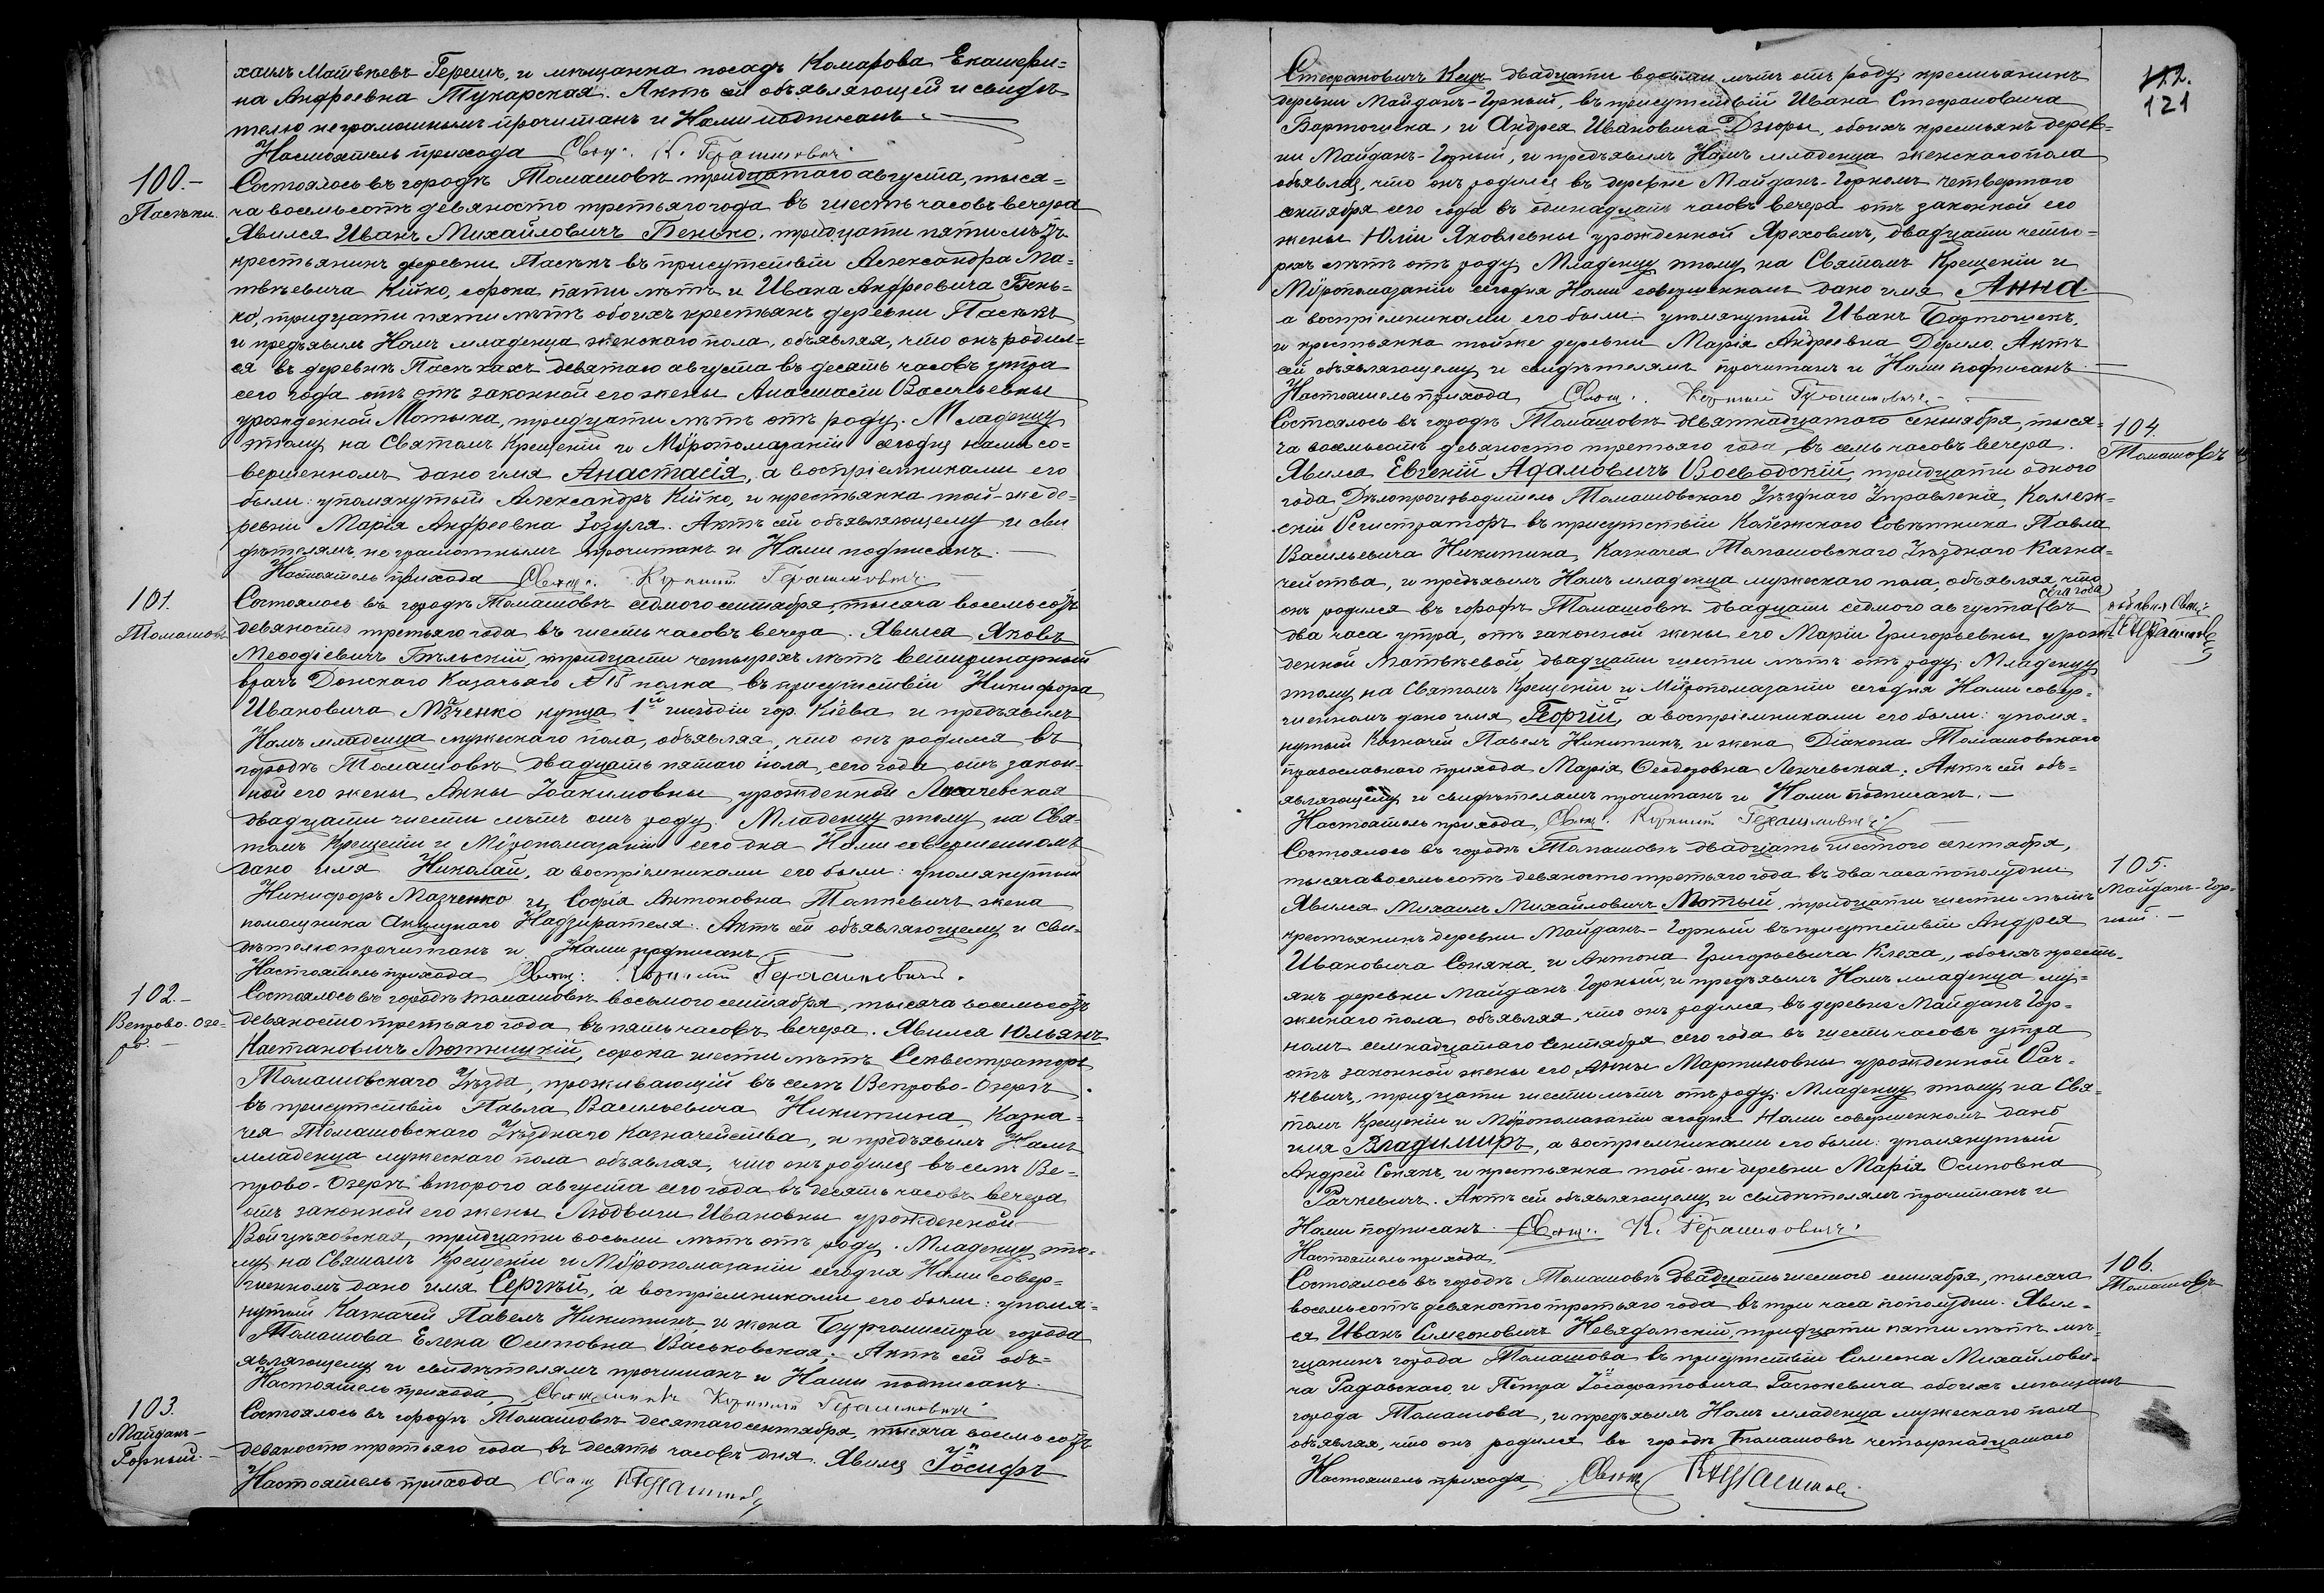 хаилъ Матвѣевъ Герешъ, и мѣщанка посадъ Комарова Екатери=
на Андреевна Тукарская. Актъ сей объявляющей и свидѣ-
телю неграмотнымъ прочитанъ и Нами подписанъ.
Настоятель прихода Свящ. К. Герашкевичъ
100.-
Пасѣки.
Состоялось въ городѣ Томашовѣ тридцатаго августа, тыся=
ча восемьсотъ девяносто третьяго года въ шесть часовъ вечера
Явился Иванъ Михайловичъ Бенько, тридцати пяти лѣтъ
крестьянинъ деревни Пасѣкъ въ присутствіи Александра Ма=
твѣевича Кійко, сорока пяти лѣтъ и Ивана Андреевича Бень=
ко, тридцати пяти лѣтъ обоихъ крестьянъ деревни Пасѣкъ
и предъявилъ Намъ младенца женскаго пола, объявляя, что онъ родил=
ся въ деревнѣ Пасѣкахъ девятаго августа въ десять часовъ утра
сего года отъ отъ законной его жены Анастасіи Васильевны
урожденной Мотыка, тридцати лѣтъ отъ роду. Младенцу
этому на Святомъ Крещеніи и Мѵропомазаніи сегодня нами со=
вершенномъ дано имя Анастасія, а воспріемниками его
были: упомянутый Александръ Кійко, и крестьянка той-же де=
ревни Марія Андреевна Зозуля. Актъ сей объявляющему и сви
дѣтелямъ неграмотнымъ прочитанъ и Нами подписанъ.
Настоятель прихода Свящ. Корнилій Герашкевичъ
101.
Томашовъ
Состоялось въ городѣ Томашовѣ седмого сентября, тысяча восемьсотъ
девяносто третьяго года въ шесть часовъ вечера. Явился Яковъ
Меѳодіевичъ Бѣльскій, тридцати четырехъ лѣтъ ветеринарный
врачъ Донскаго Казачьяго № 15 полка въ присутствіи Никифора
Ивановича Мазченко купца 1й гильдіи гор. Кіева и предъявилъ
Намъ младенца мужескаго пола, объявляя, что онъ родился въ
городѣ Томашовѣ двадцать пятаго іюля, сего года отъ закон-
ной его жены Анны Іоакимовны урожденной Лисачевская
двадцати шести лѣтъ отъ роду. Младенцу этому на Свя-
томъ Крещеніи и Мѵропомазаніи сего дня Нами совершенномъ
дано имя Николай, а воспріемниками его были: упомянутый
Никифоръ Мазченко и Софія Антоновна Танкевичъ жена
помощника Акцизнаго Надзирателя. Актъ сей объявляющему и сви-
дѣтелю прочитанъ и Нами подписанъ
Настоятель прихода Свящ. Корнилій Герашкевичъ.
102.-
Вепрово-Озе=
ро.-
Состоялось въ городѣ Томашовѣ восьмого сентября, тысяча восемьсотъ
девяносто третьяго года въ пять часовъ вечера. Явился Юльянъ
Каетановичъ Лютницкій, сорока шести лѣтъ Секвестраторъ
Томашовскаго Уѣзда, проживающій въ селѣ Вепрово-Озерѣ
въ присутствіи Павла Васильевича Никитина, Казна-
чея Томашовскаго Уѣзднаго Казначейства, и предъявилъ Намъ
младенца мужескаго пола объявляя, что онъ родился въ селѣ Ве-
прово-Озерѣ второго августа сего года въ десять часовъ вечера
отъ законной его жены Людвиги Ивановны урожденной
Войцѣховская, тридцати восьми лѣтъ отъ роду. Младенцу это-
му на Святомъ Крещеніи и Мѵропомазаніи сегодня Нами совер=
шенномъ дано имя Сергѣй, а воспріемниками его были: упомя-
нутый Казначей Павелъ Никитинъ и жена Бургомистра города
Томашова Елена Осиповна Васьковская. Актъ сей объ=
являющему и свидѣтелямъ прочитанъ и Нами подписанъ.
Настоятель прихода Священникъ Корнилій Герашкевичъ
103.
Майданъ-
Горный.-
Состоялось въ городѣ Томашовѣ десятаго сентября, тысяча восемьсотъ
девяносто третьяго года въ десять часовъ дня. Явился Іосифъ
Настоятель прихода Свящ КГерашкев
112.
121
Стефановичъ Куч двадцати восьми лѣтъ отъ роду, крестьянинъ
деревни Майданъ-Горный, въ присутствіи Ивана Стефановича
Бартошика, и Андрея Ивановича Дзюры, обоихъ крестьянъ дерев=
ни Майданъ-Горный, и предъявилъ Намъ младенца женскаго пола
объявляя, что онъ родился въ деревнѣ Майданъ-Горномъ четвертаго
сентября сего года въ одинадцать часовъ вечера отъ законной его
жены Юліи Яковлевны урожденной Яреховичъ, двадцати четы=
рехъ лѣтъ отъ роду Младенцу этому на Святомъ Крещеніи и
Мѵропомазаніи сегодня Нами совершенномъ дано имя Анна
а воспріемниками его были упомянутый Иванъ Бартошекъ,
и крестьянка тойже деревни Марія Андреевна Дерело. Актъ
сей объявляющему и свидѣтелямъ прочитанъ и Нами подписанъ.
Настоятель прихода Свящ. Корнилій Герашкевичъ
104.
Томашовъ
Состоялось въ городѣ Томашовѣ девятнадцатаго сентября, тыся-
ча восемьсотъ девяносто третьяго года въ семь часовъ вечера.
Явился Евгеній Адамовичъ Воеводскій, тридцати одного
года, Дѣлопроизводитель Томашовскаго Уѣзднаго Управленія, Коллеж-
скій Регистраторъ въ присутствіи Колежскаго Совѣтника Павла
Васильевича Никитина, Казначея Томашовскаго Уѣзднаго Казна-
чейства, и предъявилъ Намъ младенца мужескаго пола, объявляя, что
онъ родился въ городѣ Томашовѣ двадцати седмого августа (сего года) въ
два часа утра, отъ законной жены его Маріи Григорьевны урож-
денной Матвѣевой, двадцати шести лѣтъ отъ роду. Младенцу
этому на Святомъ Крещеніи и Мѵропомазаніи сегодня Нами совер-
шенномъ дано имя Георгій, а воспріемниками его были: упомя-
нутый Казначей Павелъ Никитинъ, и жена Діакона Томашовскаго
православнаго прихода Марія Ѳеодоровна Ленчевская. Актъ сей объ=
являющему и свидѣтелямъ прочитанъ и Нами подписанъ.-
Настоятель прихода, Свящ. Корнилій Герашкевичъ
105.
Майданъ-Гор-
ный.-
Состоялось въ городѣ Томашовѣ двадцать шестого сентября,
тысяча восемьсотъ девяносто третьяго года въ два часа пополудни
Явился Михаилъ Михайловичъ Мотый, тридцати шести лѣтъ
крестьянинъ деревни Майданъ-Горный въ присутствіи Андрея
Ивановича Соняка, и Антона Григорьевича Клеха, обоихъ кресть-
янъ деревни Майданъ Горный, и предъявилъ Намъ младенца му=
жескаго пола объявляя, что онъ родился въ деревнѣ Майданъ Гор-
номъ семнадцатаго Сентября сего года въ шесть часовъ утра
отъ законной жены его Анны Мартиновны урожденной Рач-
кевичъ, тридцати шести лѣтъ отъ роду. Младенцу этому на Свя=
томъ Крещеніи и Мѵропомазаніи сегодня Нами совершенномъ дано
имя Владимиръ, а воспріемниками его были: упомянутый
Андрей Сонякъ, и крестьянка той-же деревни Марія Осиповна
Рачкевичъ. Актъ сей объявляющему и свидѣтелямъ прочитанъ и
Нами подписанъ. Свящ. К. Герашкевичъ.
Настоятель прихода,
106.
Томашовъ
Состоялось въ городѣ Томашовѣ двадцать шестого сентября, тысяча
восемьсотъ девяносто третьяго года въ три часа пополудни. Явил-
ся Иванъ Симеоновичъ Невядомскій, тридцати пяти лѣтъ мѣ-
щанинъ города Томашова въ присутствіи Симеона Михайлови-
ча Радавскаго и Петра Іосафатовича Гачкевича обоихъ мѣщанъ
города Томашова, и предъявилъ Намъ младенца мужескаго пола
объявляя, что онъ родился въ городѣ Томашовѣ четырнадцатаго
Настоятель прихода, Свящ КГерашкев